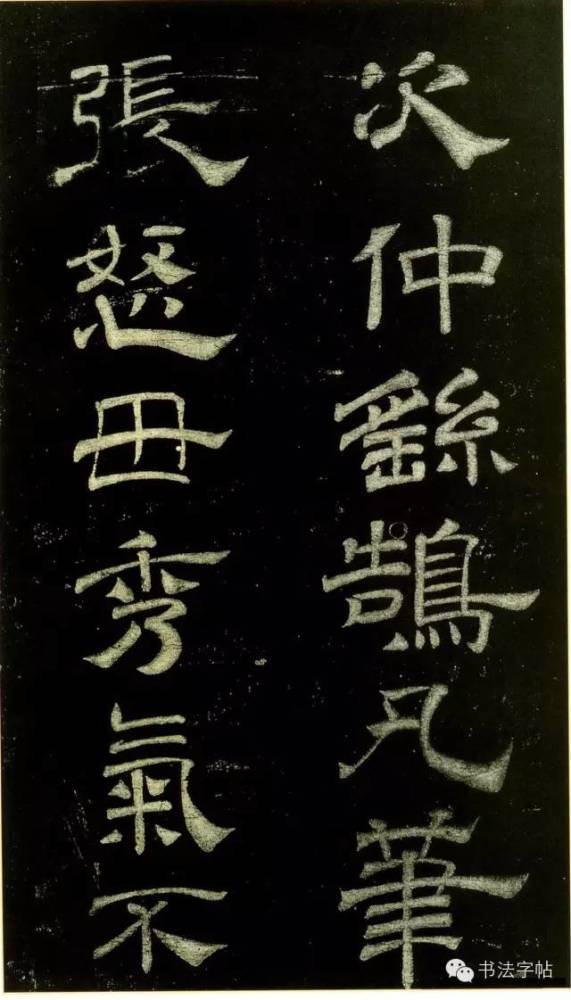 次仲繇鵠凡筆
張怒毌秀氣不
书法字帖